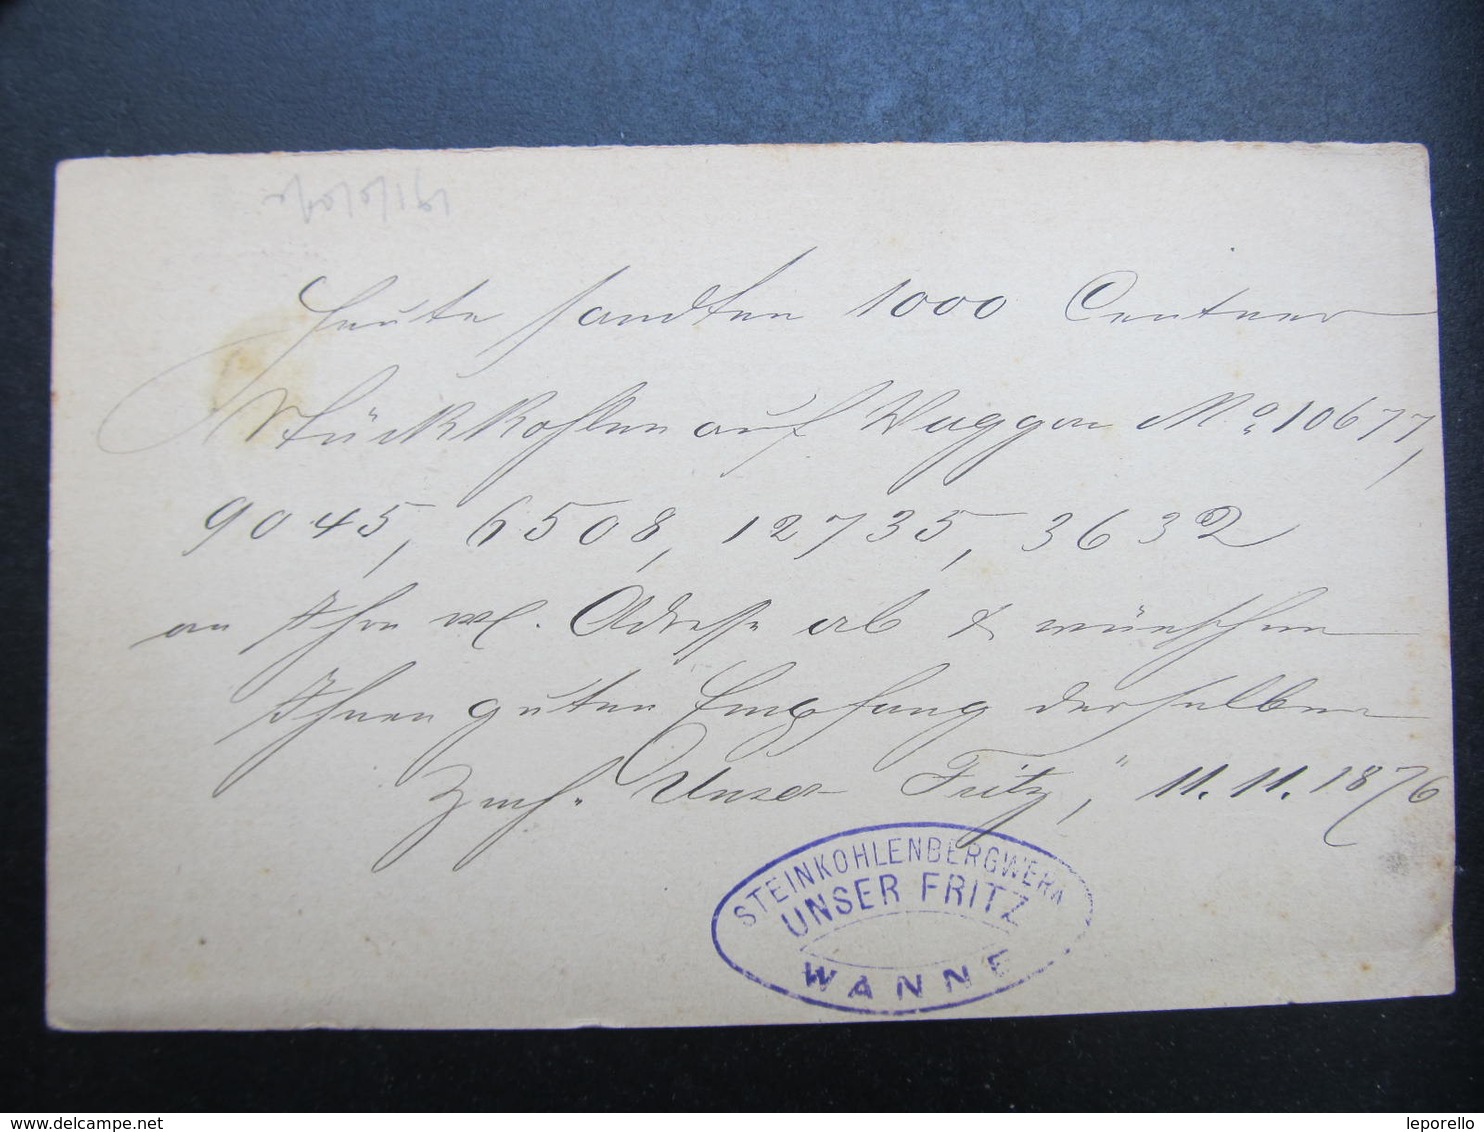 Heute sandten 1000 Centner
Stückkohlen auf Waggon No 10677,
9045, 6508, 12735, 3632
an Ihre w. Adresse ab & wünschen
Ihnen guten Empfang derselben
Zeche „Unser Fritz," 11.11.1876
STEINKOHLENBERGWERK
UNSER FRITZ
WANNE
www.delcampe.net
leporello